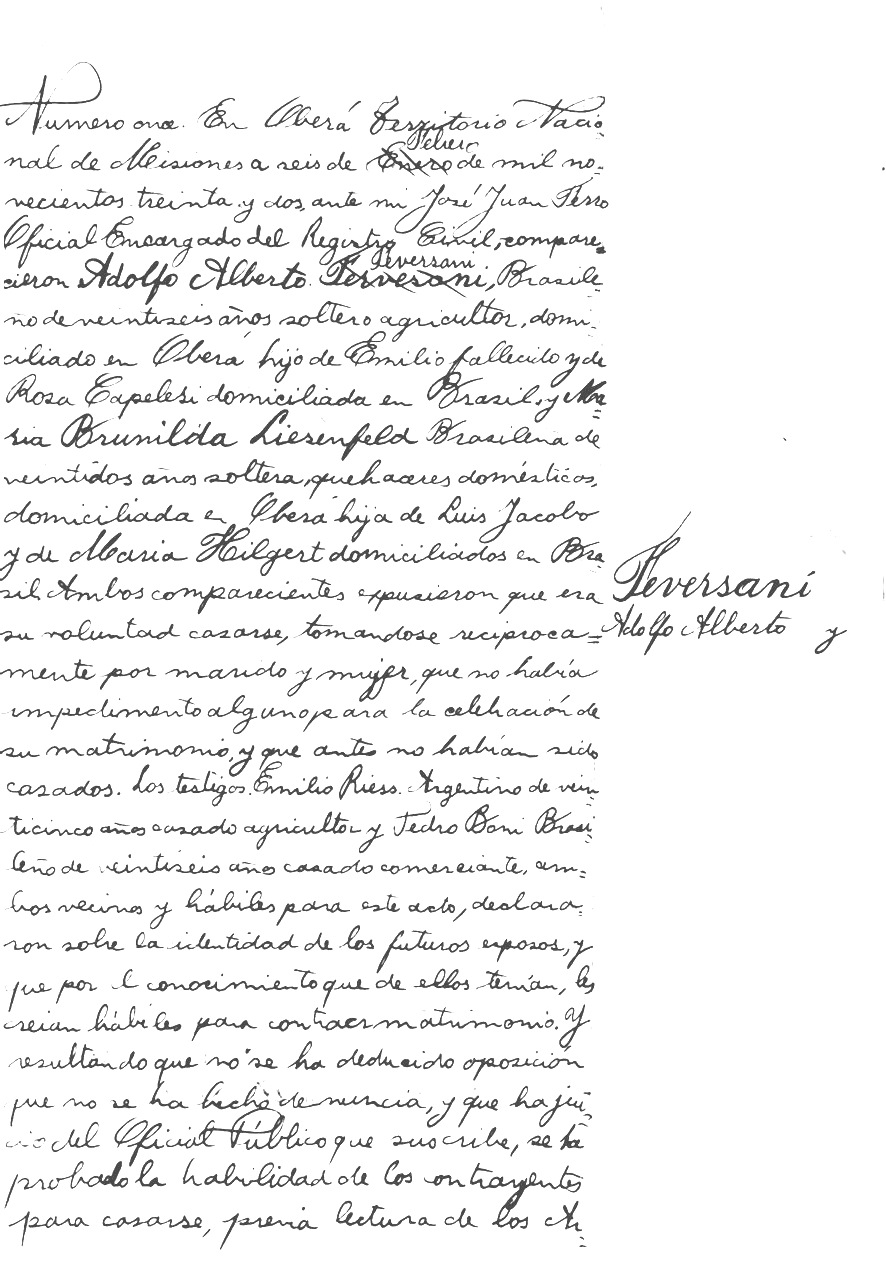 Numero once. En Oberá Territorio Nacio-
Febrero
nal de Misiones a seis de Enero de mil no-
vecientos treinta y dos, ante mi José Juan Ferro
Oficial Encargado del Registro Civil, compare-
Teversani
cieron Adolfo Alberto Terversani, Brasile
ño de veintiseis años soltero agricultor, domi-
ciliado en Oberá hijo de Emilio fallecido y de
Rosa Capelesi domiciliada en Brasil, y Ma-
ria Brunilda Liesenfeld Brasilena de
veintidos años soltera, quehaceres domésticos,
domiciliada en Oberá hija de Luis Jacobo
y de Maria Hilgert domiciliados en Bra-
sil. Ambos comparecientes expusieron que era
su voluntad casarse, tomandose reciproca=
mente por marido y mujer, que no había
impedimento alguno para la celebración de
su matrimonio, y que antes no habían sido
casados. Los testigos Emilio Riess. Argentino de vein-
ticinco años casado agricultor y Pedro Boni Brasi-
leño de veintiseis años casado comerciante, am-
bos vecinos y hábiles para este acto, declara-
ron sobre la identidad de los futuros esposos, y
que por el conocimiento que de ellos tenían, les
creian hábiles para contraer matrimonio. Y
resultando que no se ha deducido oposición
que no se ha hecho denuncia, y que ha jui-
cio del Oficial Público que suscribe, se ha
probado la habilidad de los contrayentes
para casarse, previa lectura de los Ar-
Teversani
Adolfo Alberto y